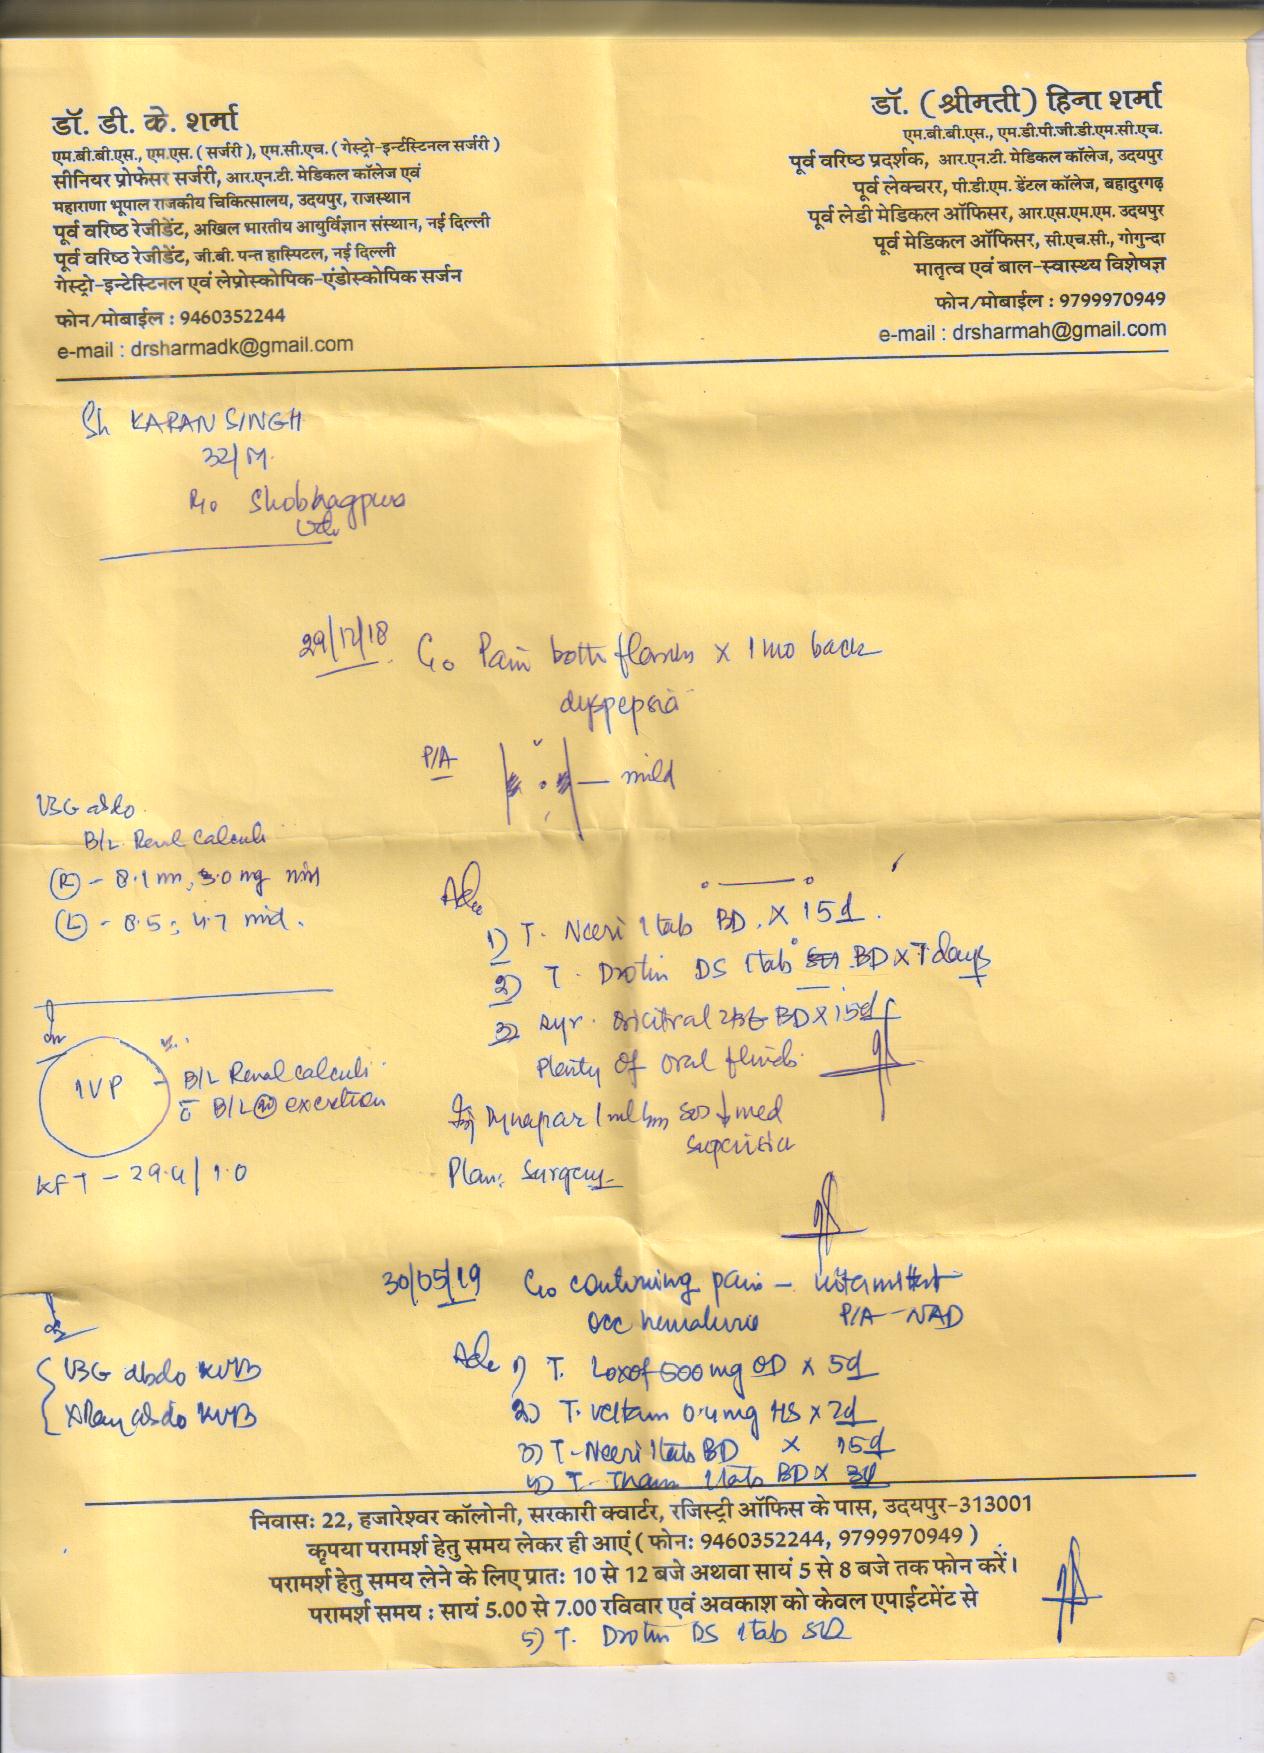 डॉ. डी. के. शर्मा
एम.बी.बी.एस., एम.एस. ( सर्जरी ), एम.सी.एच. ( गेस्ट्रो-इन्टेंस्टिनल सर्जरी )
सीनियर प्रोफेसर सर्जरी, आर.एन.टी. मेडिकल कॉलेज एवं
महाराणा भूपाल राजकीय चिकित्सालय, उदयपुर, राजस्थान
पूर्व वरिष्ठ रेजीडेंट, अखिल भारतीय आयुर्विज्ञान संस्थान, नई दिल्ली
पूर्व वरिष्ठ रेजीडेंट, जी.बी. पन्त हास्पिटल, नई दिल्ली
गेस्ट्रो-इन्टेस्टिनल एवं लेप्रोस्कोपिक-एंडोस्कोपिक सर्जन
फोन/मोबाईल : 9460352244
e-mail : drsharmadk@gmail.com
डॉ. (श्रीमती) हिना शर्मा
एम.बी.बी.एस., एम.डी.पी.जी.डी.एम.सी.एच.
पूर्व वरिष्ठ प्रदर्शक, आर.एन.टी. मेडिकल कॉलेज, उदयपुर
पूर्व लेक्चरर, पी.डी.एम. डेंटल कॉलेज, बहादुरगढ़
पूर्व लेडी मेडिकल ऑफिसर, आर.एस.एम.एम. उदयपुर
पूर्व मेडिकल ऑफिसर, सी.एच.सी., गोगुन्दा
मातृत्व एवं बाल-स्वास्थ्य विशेषज्ञ
फोन/मोबाईल : 9799970949
e-mail : drsharmah@gmail.com
Sh KARAN SINGH
32/M.
R/o Shobhagpura
29/12/18 C/o Pain both flanks x 1 mo back
dyspepsia
P/A mild
USG abdo
B/L Renal Calculi
(R) - 8.1 mm, 3.0 mm
(L) - 8.5, 4.7 mid.
Adv
1) T. Neeri 1 tab BD. X 15d.
2) T. Drotin DS 1 tab BD X 7 days
3) Syr. Oricitral BD X 15d
Plenty of oral fluids
Inj Dynapar 1 ml Im SOS med
Plan: Surgery
IVP - B/L Renal calculi
B/L (N) excretion
KFT - 29.4/1.0
30/05/19 C/o continuing pain - intermittent
occ hematuria P/A - NAD
Adv 1) T. Loxof 500mg OD x 5d
2) T. Veltam 0.4mg HS x
3) T-Neeri 1 tab BD x 15d
4) T- 1 tab BD x
USG abdo KUB
XRay abdo KUB
निवासः 22, हजारेश्वर कॉलोनी, सरकारी क्वार्टर, रजिस्ट्री ऑफिस के पास, उदयपुर-313001
कृपया परामर्श हेतु समय लेकर ही आएं ( फोनः 9460352244, 9799970949 )
परामर्श हेतु समय लेने के लिए प्रातः 10 से 12 बजे अथवा सायं 5 से 8 बजे तक फोन करें।
परामर्श समय : सायं 5.00 से 7.00 रविवार एवं अवकाश को केवल एपाईटमेंट से
5) T. Drotin DS 1 tab